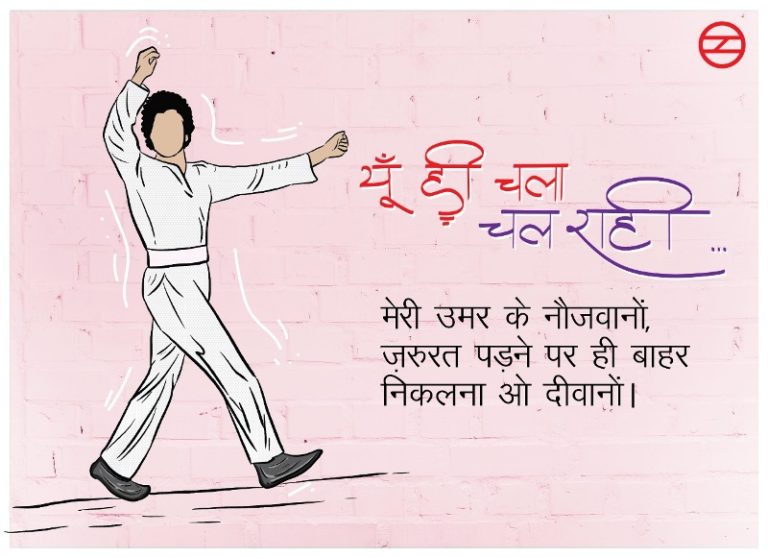 यूँ ही चला
चल राही...
मेरी उमर के नौजवानों,
ज़रुरत पड़ने पर ही बाहर
निकलना ओ दीवानों।